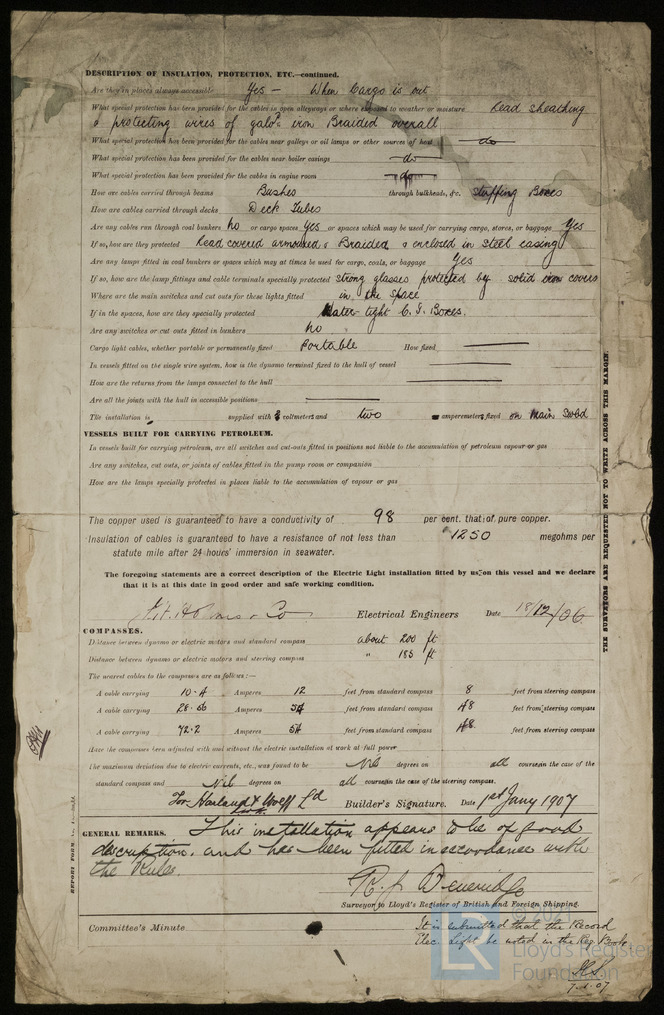 DESCRIPTION OF INSULATION, PROTECTION, ETC.—continued.
Are they in places always accessible Yes — When Cargo is out
What special protection has been provided for the cables in open alleyways or where exposed to weather or moisture Lead sheathing
& protecting wires of galvd iron Braided overall
What special protection has been provided for the cables near galleys or oil lamps or other sources of heat do
What special protection has been provided for the cables near boiler casings do
What special protection has been provided for the cables in engine room do
How are cables carried through beams Bushes through bulkheads, &c. Stuffing Boxes
How are cables carried through decks Deck Tubes
Are any cables run through coal bunkers no or cargo spaces yes or spaces which may be used for carrying cargo, stores, or baggage yes
If so, how are they protected Lead covered armoured & Braided & enclosed in steel casing
Are any lamps fitted in coal bunkers or spaces which may at times be used for cargo, coals, or baggage Yes
If so, how are the lamp fittings and cable terminals specially protected strong glasses protected by solid iron covers
Where are the main switches and cut outs for these lights fitted in the space
If in the spaces, how are they specially protected Water tight C.I. Boxes.
Are any switches or cut outs fitted in bunkers no
Cargo light cables, whether portable or permanently fixed Portable How fixed
In vessels fitted on the single wire system, how is the dynamo terminal fixed to the hull of vessel
How are the returns from the lamps connected to the hull
Are all the joints with the hull in accessible positions
The installation is supplied with voltmeters and two amperemeters fixed on Main Swbd
VESSELS BUILT FOR CARRYING PETROLEUM.
In vessels built for carrying petroleum, are all switches and cut-outs fitted in positions not liable to the accumulation of petroleum vapour or gas
Are any switches, cut outs, or joints of cables fitted in the pump room or companion
How are the lamps specially protected in places liable to the accumulation of vapour or gas
The copper used is guaranteed to have a conductivity of 98 per cent. that of pure copper.
Insulation of cables is guaranteed to have a resistance of not less than 1250 megohms per
statute mile after 24 hours' immersion in seawater.
The foregoing statements are a correct description of the Electric Light installation fitted by us on this vessel and we declare
that it is at this date in good order and safe working condition.
J.H. Holmes & Co Electrical Engineers Date 18/12/06
COMPASSES.
Distance between dynamo or electric motors and standard compass about 200 ft
Distance between dynamo or electric motors and steering compass " 185 ft
The nearest cables to the compasses are as follows:—
A cable carrying 10.4 Amperes 12 feet from standard compass 8 feet from steering compass
A cable carrying 28.56 Amperes 54 feet from standard compass 48 feet from steering compass
A cable carrying 72.2 Amperes 54 feet from standard compass 48 feet from steering compass
Have the compasses been adjusted with and without the electric installation at work at full power
The maximum deviation due to electric currents, etc., was found to be Nil degrees on all course in the case of the
standard compass and Nil degrees on all course in the case of the steering compass.
For Harland & Wolff Ld Builder's Signature. Date 1st Jany 1907
GENERAL REMARKS. This installation appears to be of good
description, and has been fitted in accordance with
the Rules.
R. J. Beveridge
Surveyor to Lloyd's Register of British and Foreign Shipping.
Committee's Minute It is submitted that the Record
Elec. Light be noted in the Reg. Book
7.1.07
THE SURVEYORS ARE REQUESTED NOT TO WRITE ACROSS THIS MARGIN.
LR
Lloyd's Register
Foundation